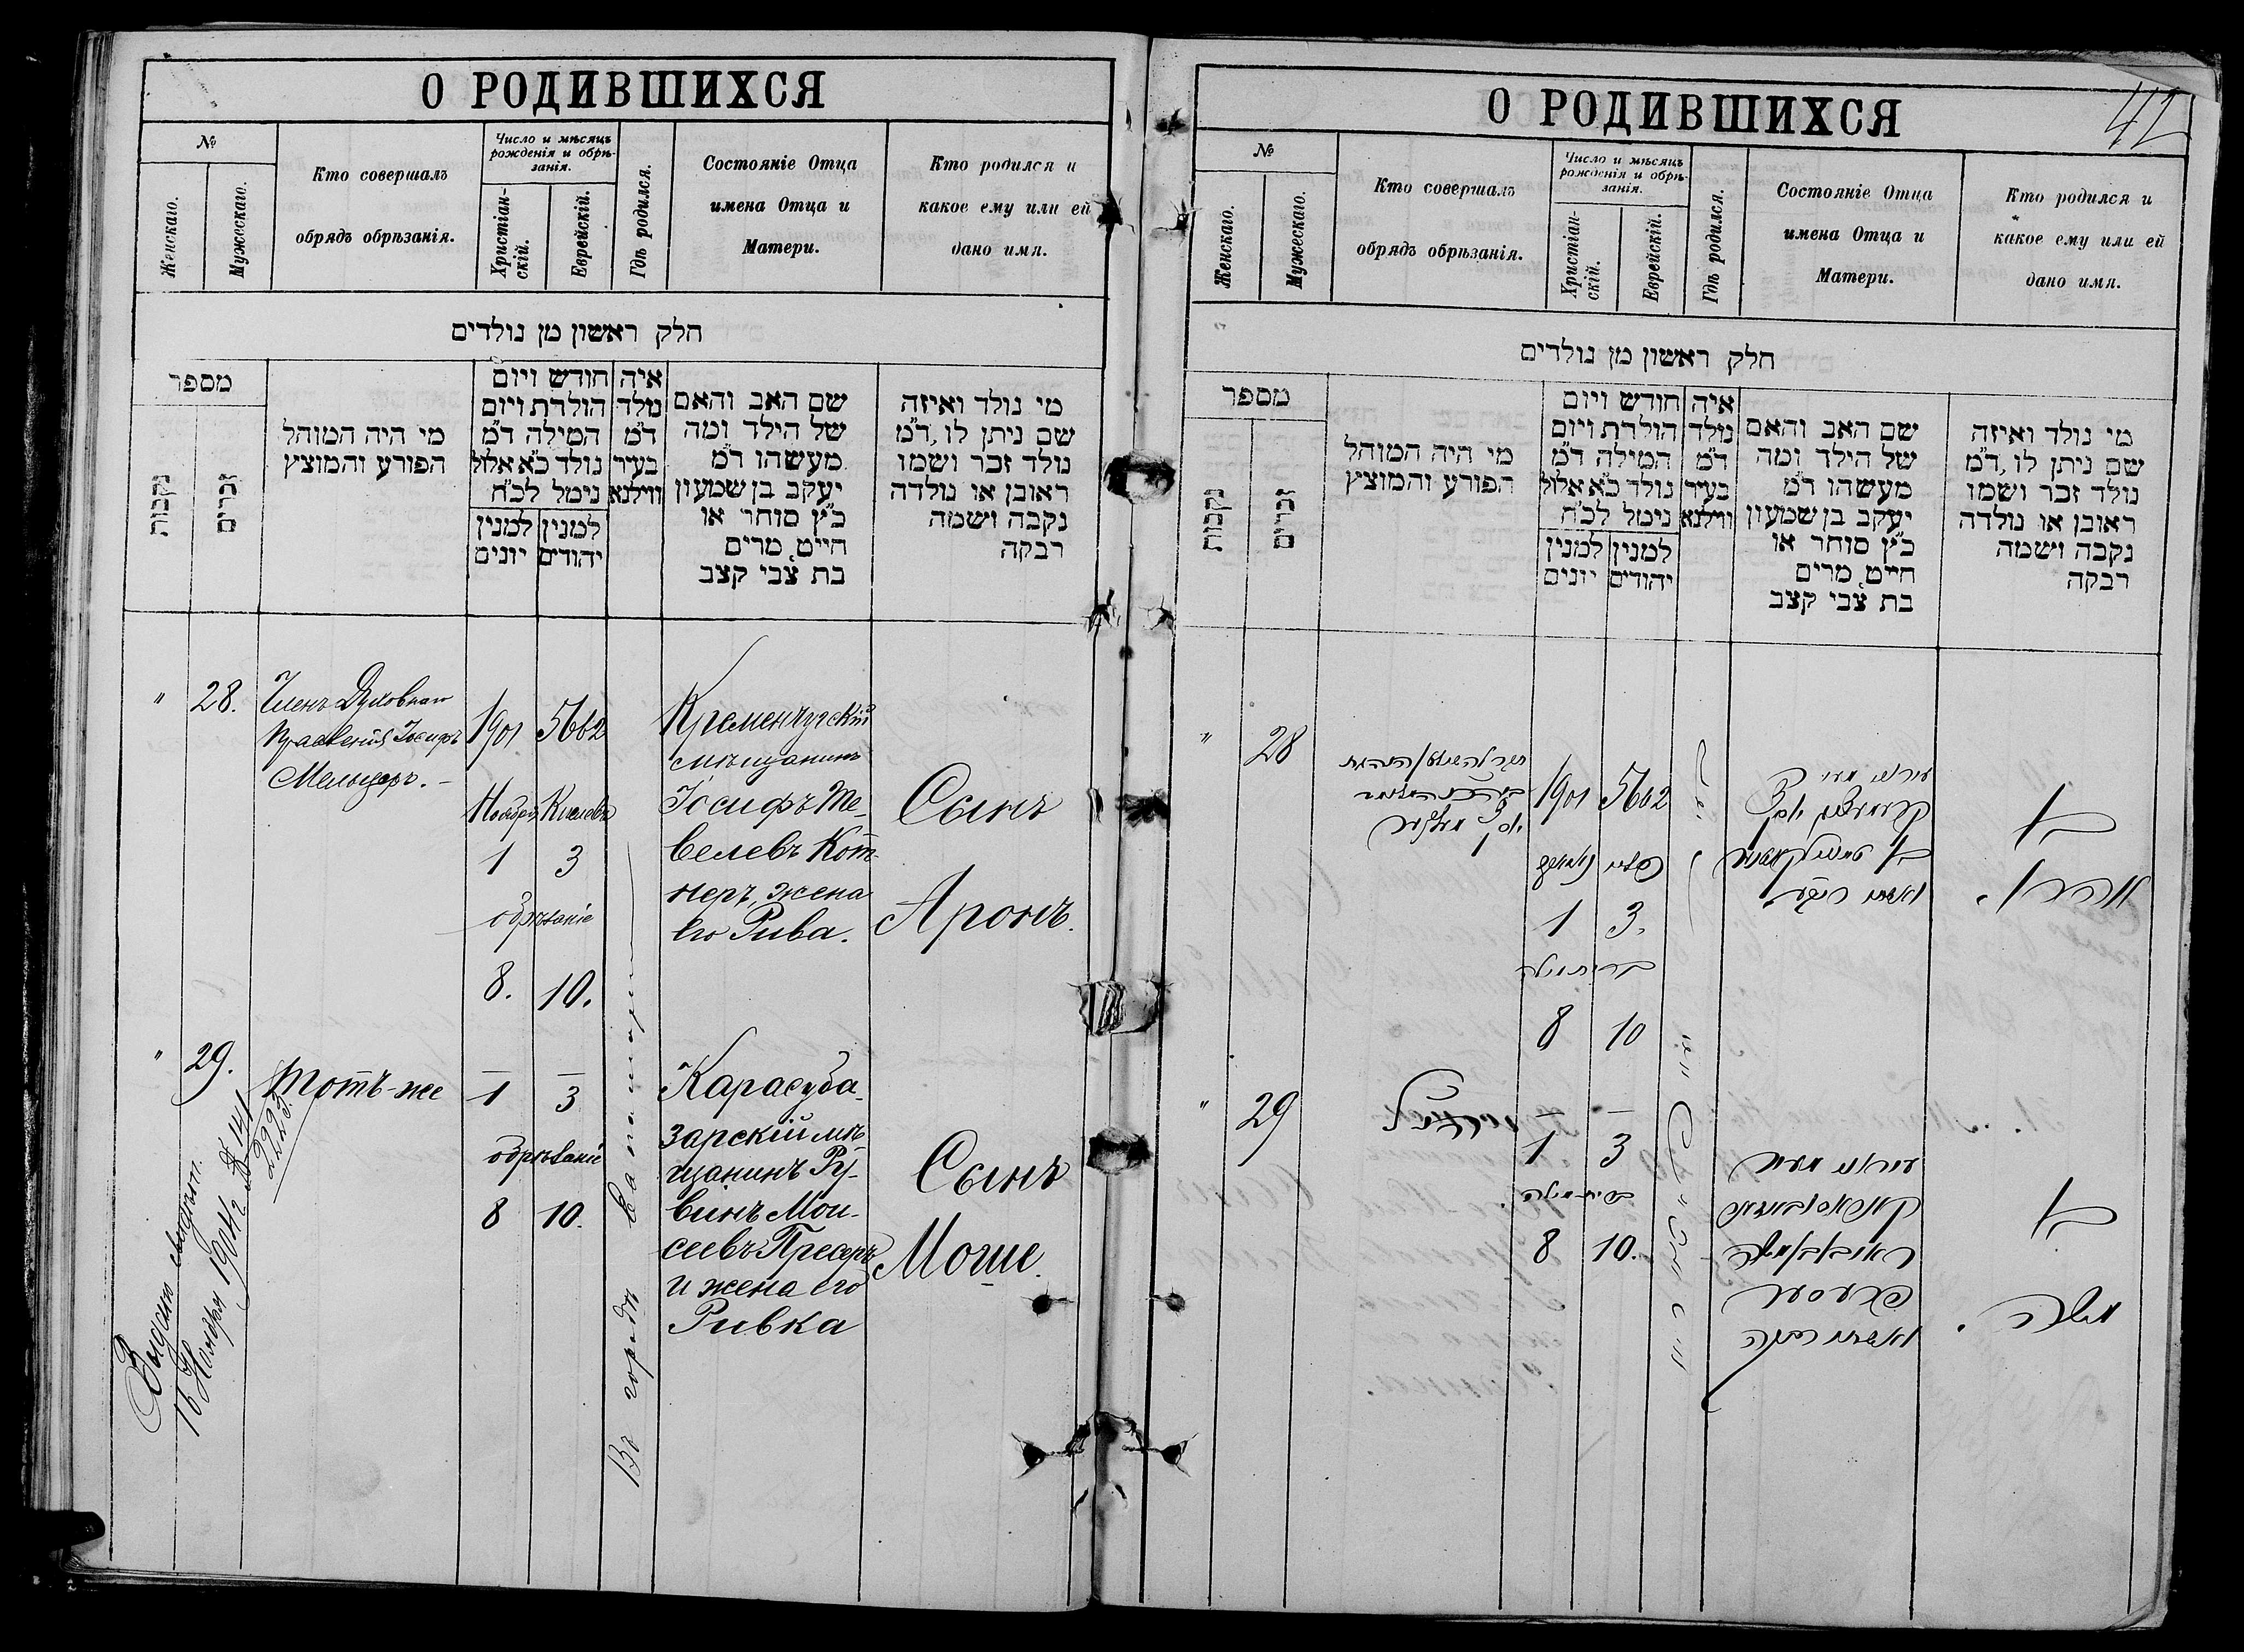 О РОДИВШИХСЯ
№
Женскаго.
Мужескаго.
Кто совершалъ
обрядъ обрѣзанія.
Число и мѣсяцъ
рожденія и обрѣ-
занія.
Христіан-
скій.
Еврейскій.
Гдѣ родился.
Состояніе Отца
имена Отца и
Матери.
Кто родился и
какое ему или ей
дано имя.
חלק ראשון מן נולדים
מספר
נקבות
זכרים
מי היה המוהל
הפורע והמוצץ
חודש ויום
הולדת ויום
המילה ד״מ
נולד כ״א אלול
נימל לכ״ח
למנין
יונים
למנין
יהודים
איה
נולד
ד״מ
בעיר
ווילנא
שם האב והאם
של הילד ומה
מעשהו ד״מ
יעקב בן שמעון
כ״ץ סוחר או
חייט, מרים
בת צבי קצב
מי נולד ואיזה
שם ניתן לו, ד״מ
נולד זכר ושמו
ראובן או נולדה
נקבה ושמה
רבקה
" 28.
Членъ Духовнаго
Правленія Іосифъ
Мельцеръ. -
1901 5662
Ноября Кислевъ
1 3
обрѣзаніе
8. 10.
Въ городѣ Евпаторіи
Кременчугскій
мѣщанинъ
Іосифъ Те-
велевъ Кот-
неръ, жена
его Рива.
Сынъ
Аронъ.
" 29.
Тотъ-же
1 3
обрѣзаніе
8 10.
Карасуба-
зарскій мѣ-
щанинъ Ру-
винъ Мои-
сеевъ Пресеръ
и жена его
Ривка
Сынъ
Моше.
16 Ноября 1904 г. № 141
2223.
О РОДИВШИХСЯ
42
№
Женскаго.
Мужескаго.
Кто совершалъ
обрядъ обрѣзанія.
Число и мѣсяцъ
рожденія и обрѣ-
занія.
Христіан-
скій.
Еврейскій.
Гдѣ родился.
Состояніе Отца
имена Отца и
Матери.
Кто родился и
какое ему или ей
дано имя.
חלק ראשון מן נולדים
מספר
נקבות
זכרים
מי היה המוהל
הפורע והמוצץ
חודש ויום
הולדת ויום
המילה ד״מ
נולד כ״א אלול
נימל לכ״ח
למנין
יונים
למנין
יהודים
איה
נולד
ד״מ
בעיר
ווילנא
שם האב והאם
של הילד ומה
מעשהו ד״מ
יעקב בן שמעון
כ״ץ סוחר או
חייט, מרים
בת צבי קצב
מי נולד ואיזה
שם ניתן לו, ד״מ
נולד זכר ושמו
ראובן או נולדה
נקבה ושמה
רבקה
" 28
1901 5662
1 3.
ברית מילה
8 10
בן
אהרן.
" 29
1 3
ברית מילה
8 10.
ואשתו רבקה
בן
משה.